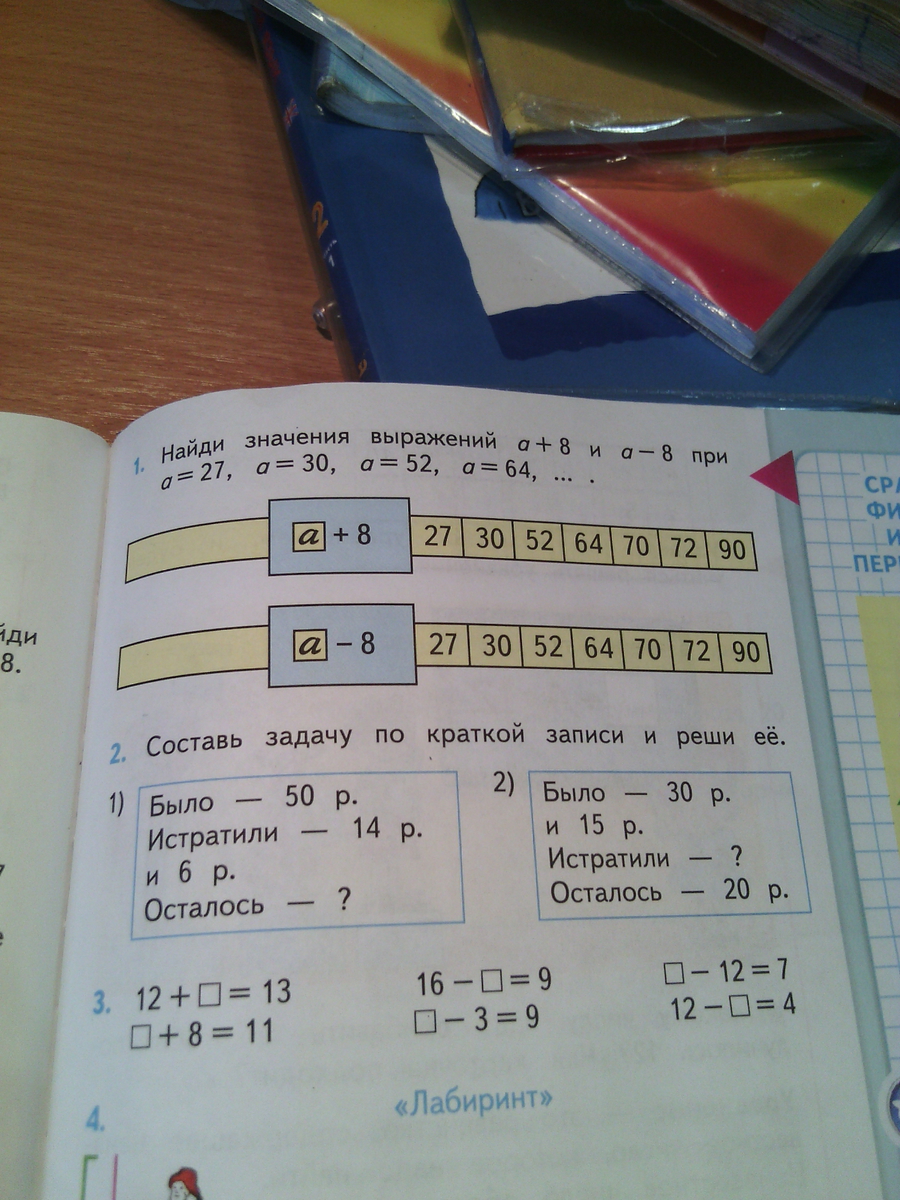 1. Найди значения выражений a + 8 и a − 8 при
a = 27, a = 30, a = 52, a = 64, ... .
a + 8 27 30 52 64 70 72 90
a − 8 27 30 52 64 70 72 90
2. Составь задачу по краткой записи и реши её.
1) Было — 50 р.
Истратили — 14 р.
и 6 р.
Осталось — ?
2) Было — 30 р.
и 15 р.
Истратили — ?
Осталось — 20 р.
3. 12 + □ = 13 16 − □ = 9 □ − 12 = 7
□ + 8 = 11 □ − 3 = 9 12 − □ = 4
4. «Лабиринт»
йди
8.
СРА
ФИ
И
ПЕР
2